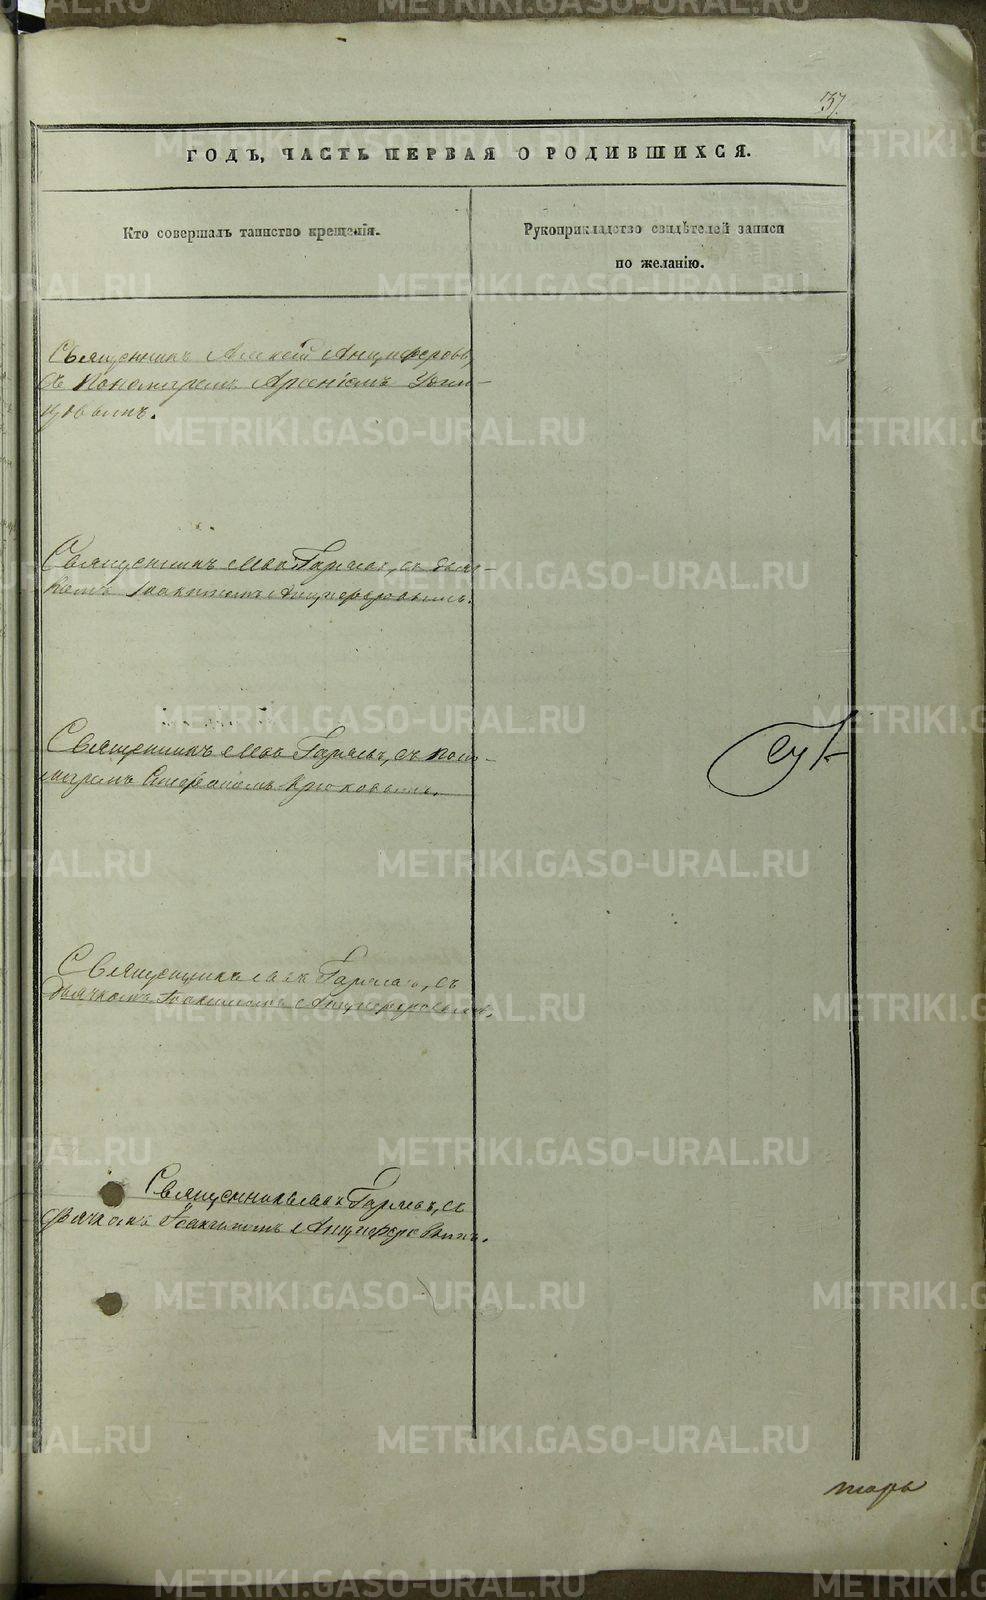 37.
ГОДЪ, ЧАСТЬ ПЕРВАЯ О РОДИВШИХСЯ.
Кто совершалъ таинство крещенія.
Рукоприкладство свидѣтелей записи
по желанію.
Священникъ Алексѣй Анциферовъ,
съ Пономаремъ Арсеніемъ
Священникъ Гаряевъ, съ дьяч-
комъ Іоакимомъ Анциферовымъ.
Священникъ Гаряевъ, съ поно-
маремъ Стефаномъ Крюковымъ.
Священникъ Гаряевъ, съ
дьячкомъ Іоакимомъ Анциферовымъ.
Священникъ Гаряевъ, съ
дьячкомъ Іоакимомъ Анциферовымъ.
METRIKI.GASO-URAL.RU